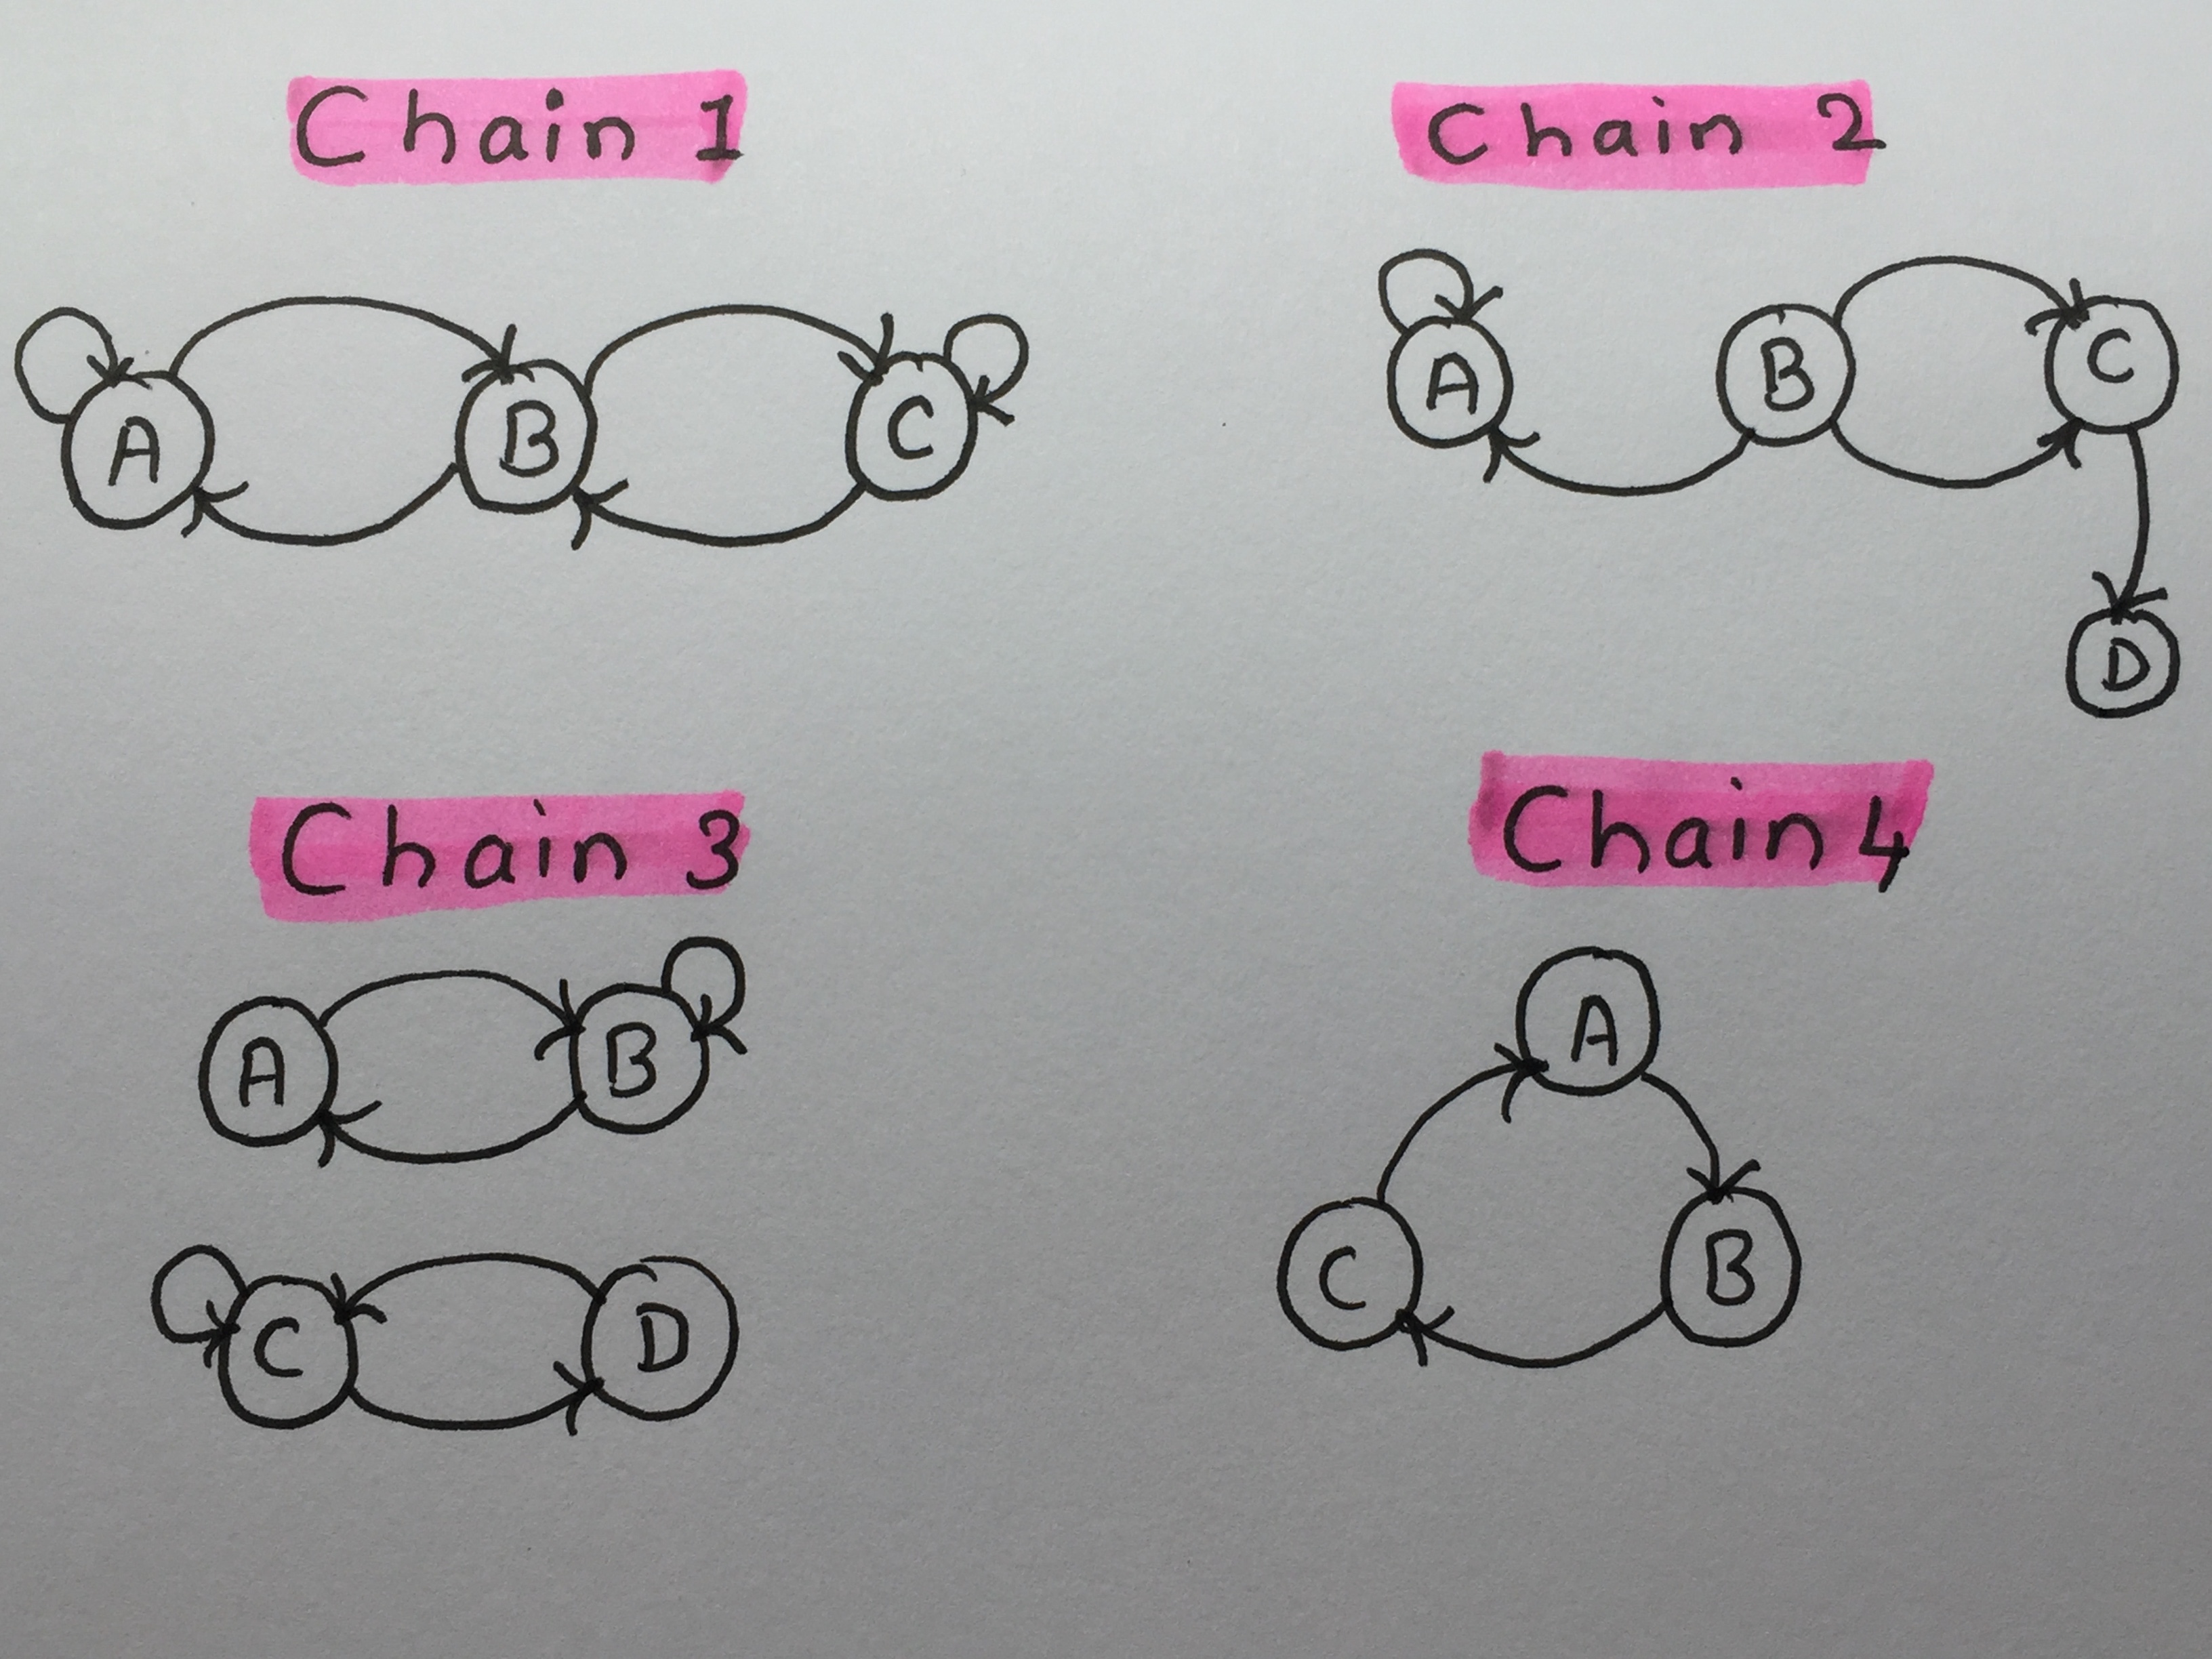 Chain 1
A B C
Chain 2
A B C
D
Chain 3
A B
C D
Chain 4
A
C B